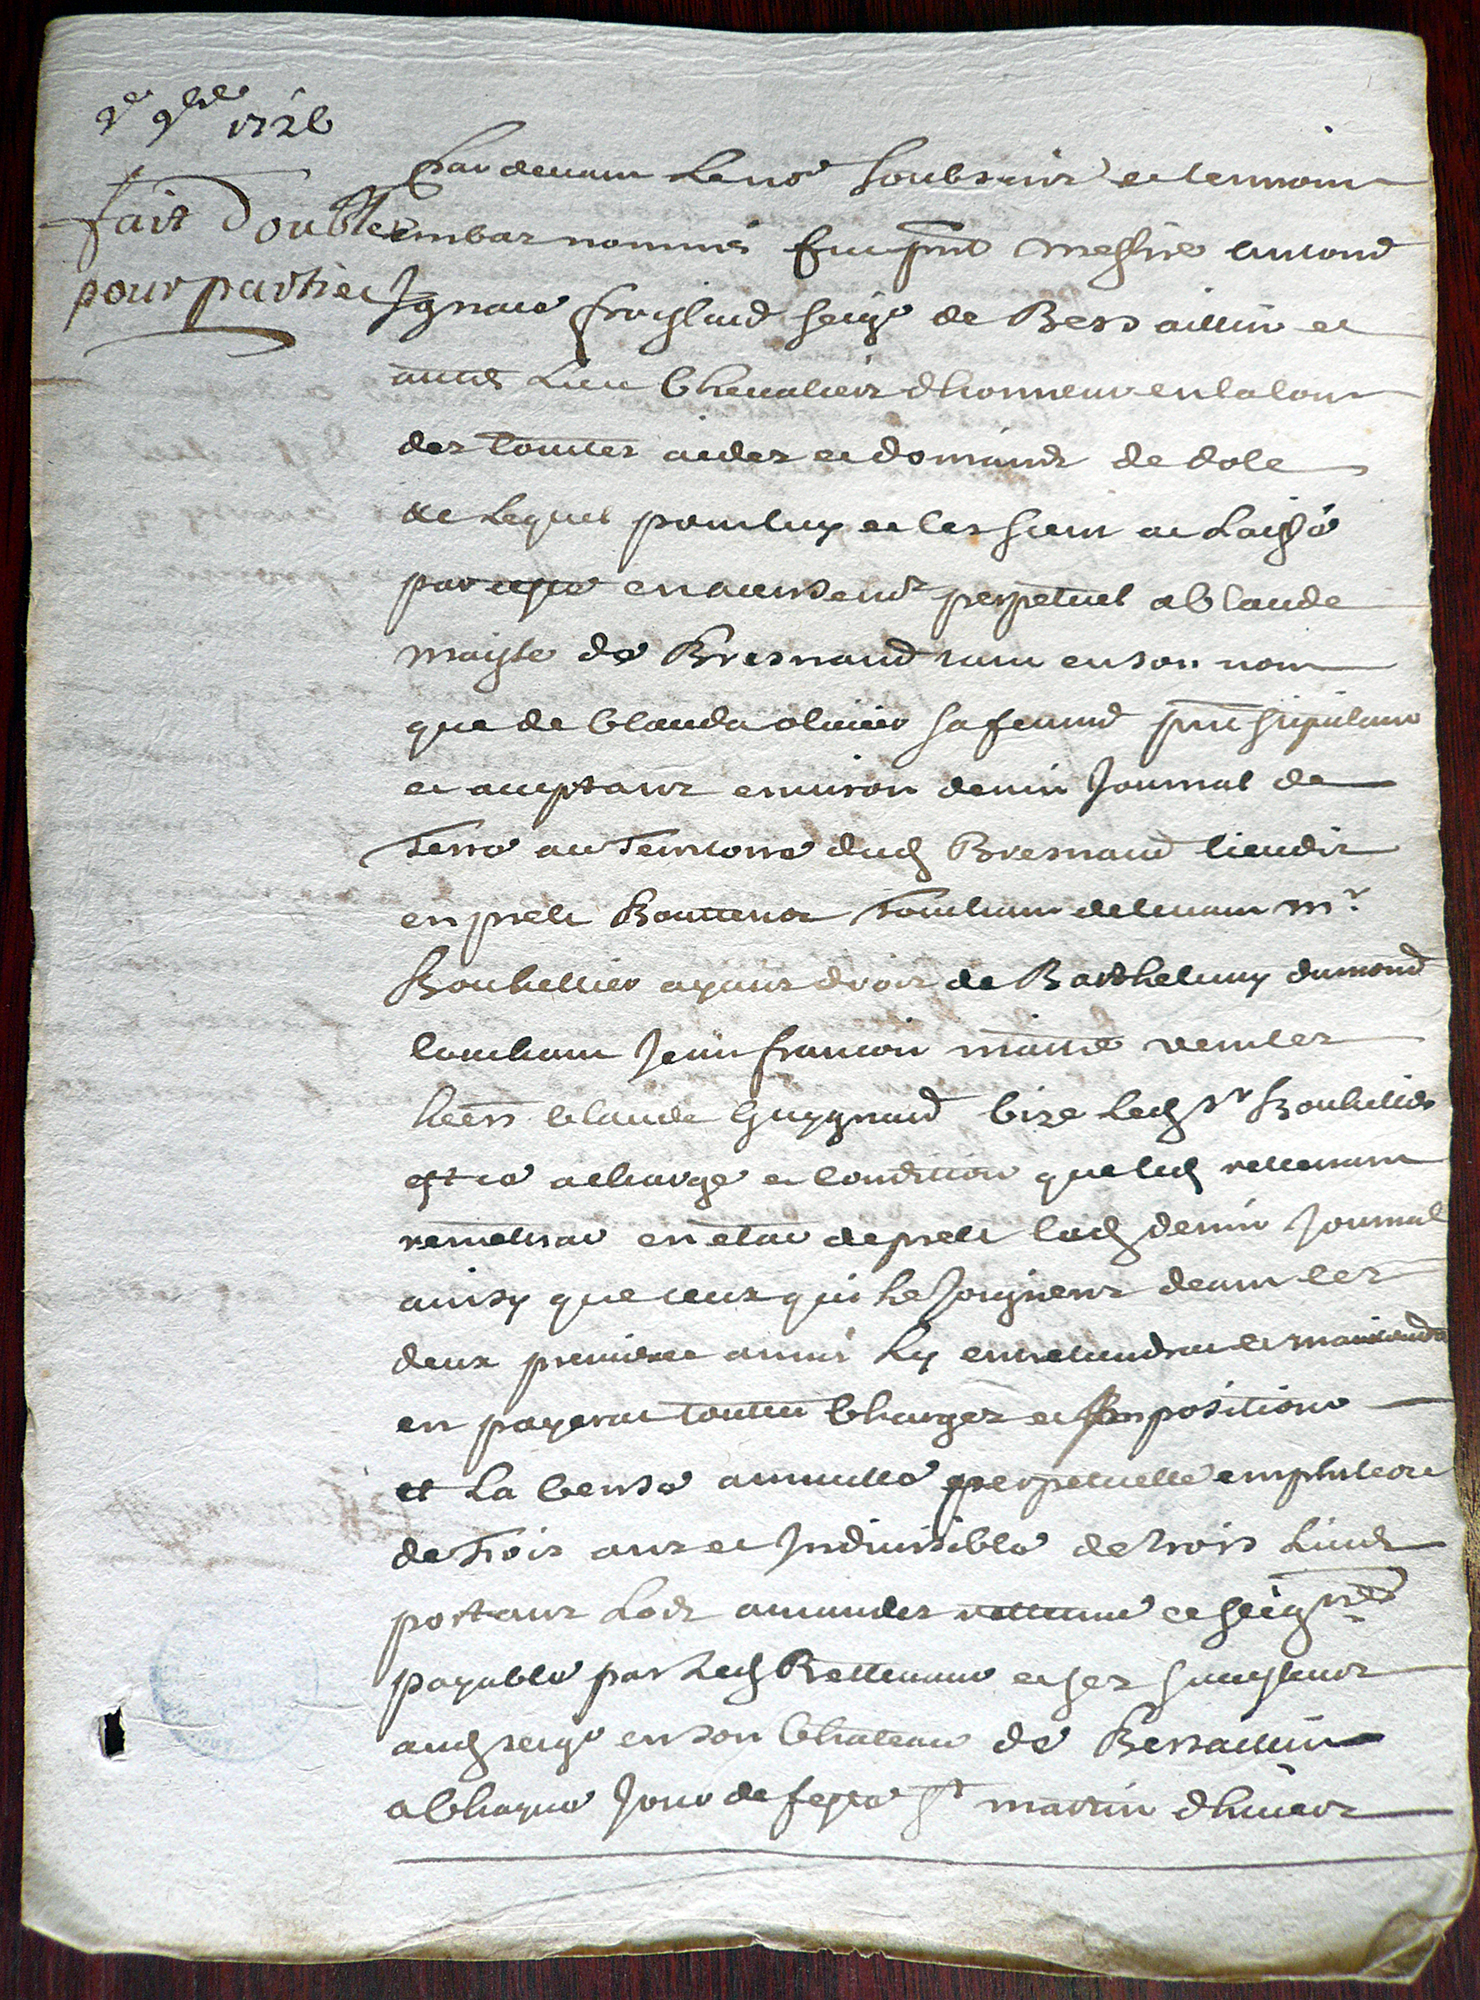 9bre 1728
fait double
pour partie
Pardevant le no.re soubscrit et tesmoins
embas nommés fut pnt messire antoine
Ignace froissard seigr de Bersaillin et
autres lieu Chevalier dhonneur en la cour
des comtes aides et domaines de dole
lequel pour luy et les siens a laissé
par cette en acensemt perpetuel a Claude
maistre de Bresnand tant en son nom
que de Clauda olivier sa femme pnt stipulant
et acceptant environ demin Journal de
Terre au Territoire dud Bresnand lieudit
en prelt Bouttenot touchant delevant mr
Bouhellier ayant droit de Barthelemy dumond
couchant Jean francois maitre vent les
heers Claude Guygnard bize led sr Bouhellier
et ce a charge et condition que led rettenant
remettrat en etat de prelt led demin Journal
ainsy que ceux qui le Joignent dans les
deux premieres année ly entretiendrat et maintiendra
en payerat toutes Charges et Impositions
et la Cense annuelle perpetuelle emphiteote
de trois ans et Indivisible de trois livres
portant lods amandes rettenue et seignries
payable par led Rettenant et ses successeurs
aud seigr en son Chateau de Bersaillin
a Chaque Jour de feste st martin dhiver